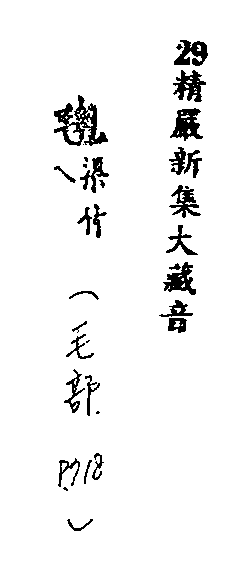 29精嚴新集大藏音
渠竹（毛部 P.718）